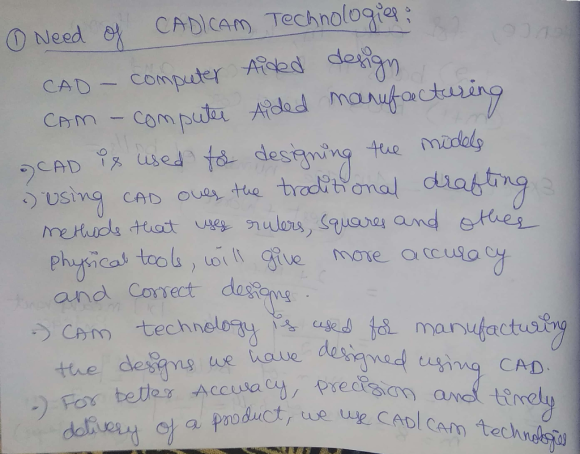 ① Need of CAD/CAM Technologies:
CAD - Computer Aided design
CAM - Computer Aided manufacturing
•) CAD is used for designing the models
•) Using CAD over the traditional drafting
methods that uses rulers, squares and other
physical tools, will give more accuracy
and correct designs.
•) CAM technology is used for manufacturing
the designs we have designed using CAD.
•) For better Accuracy, precision and timely
delivery of a product, we use CAD/CAM technologies